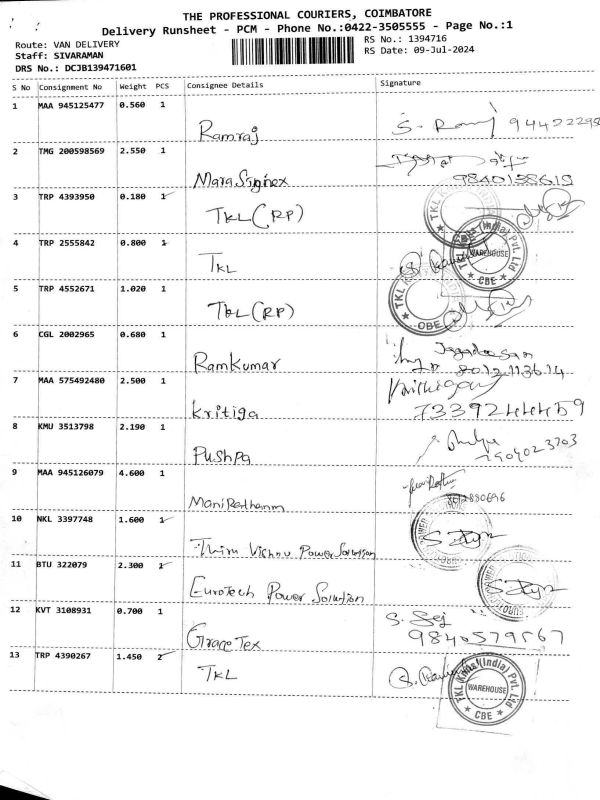 THE PROFESSIONAL COURIERS, COIMBATORE
Delivery Runsheet - PCM - Phone No.:0422-3505555 - Page No.:1
Route: VAN DELIVERY
RS No.: 1394716
Staff: SIVARAMAN
RS Date: 09-Jul-2024
DRS No.: DCJB139471601
S No Consignment No Weight PCS Consignee Details Signature
1 MAA 945125477 0.560 1
Ramraj
2 TMG 200598569 2.550 1
Mara Signex
9840158619
3 TRP 4393950 0.180 1
TKL (RP)
4 TRP 2555842 0.800 1
TKL
TKL Knits (India) Pvt. Ltd
WAREHOUSE
★ CBE ★
5 TRP 4552671 1.020 1
TKL (RP)
6 CGL 2002965 0.680 1
RamKumar
Jagadeesan
8012113614
7 MAA 575492480 2.500 1
Kritiga
8 KMU 3513798 2.190 1
Pushpa
9 MAA 945126079 4.600 1
ManiRathanm
10 NKL 3397748 1.600 1
Thiru Vishnu Power Solution
11 BTU 322079 2.300 1
Eurotech Power Solution
12 KVT 3108931 0.700 1
S. Sej
Grace Tex
9840579567
13 TRP 4390267 1.450 2
TKL
TKL Knits (India) Pvt. Ltd
WAREHOUSE
★ CBE ★